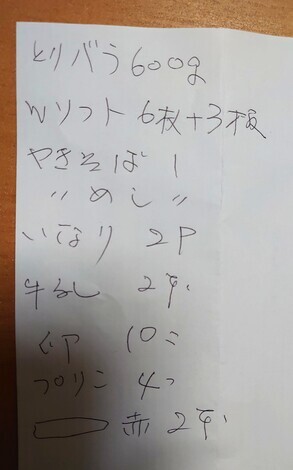 とりバラ 600g
Wソフト 6枚+3枚
やきそば 1
〃 めし 〃
いなり 2P
牛なし 2平
10コ
プリン 4つ
赤 2平